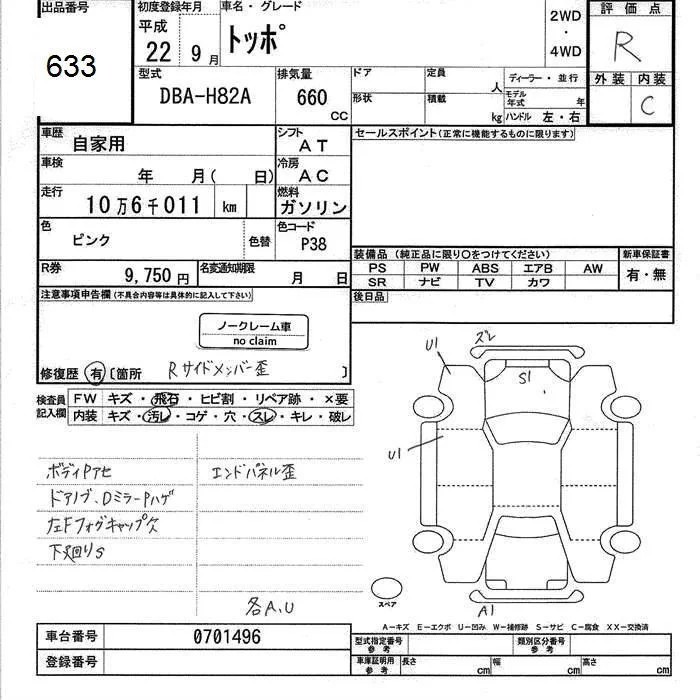 出品番号
633
初度登録年月
平成
22 9月
車名・グレード
トッポ
2WD
・
4WD
評価点
R
外装 内装
C
型式
DBA-H82A
排気量
660
CC
ドア
定員
人
形状
積載
kg
ディーラー・並行
モデル年式 年
ハンドル 左・右
車歴
自家用
シフト
AT
車検
年 月( 日)
冷房
AC
走行
10万6千011 km
燃料
ガソリン
色
ピンク
色替
色コード
P38
R券
9,750円
名変通知期限
月 日
セールスポイント(正常に機能するものに限ります)
装備品 (純正品に限り○をつけてください)
新車保証書
PS PW ABS エアB AW
SR ナビ TV カワ
有・無
後日品
注意事項申告欄(不具合内容等は具体的に記入して下さい)
ノークレーム車
no claim
修復歴 有 〔箇所 Rサイドメンバー歪 〕
検査員記入欄
FW キズ・飛石・ヒビ割・リペア跡・×要
内装 キズ・汚レ・コゲ・穴・スレ・キレ・破レ
ボディPアセ
ドアノブ、DミラーPハゲ
左Fフォグキャップ欠
下廻りS
エンドパネル歪
各A,U
U1
ズレ
S1
U1
A1
スペア
A-キズ E-エクボ U-凹み W-補修跡 S-サビ C-腐食 XX-交換済
車台番号
0701496
登録番号
型式指定番号
参考
類別区分番号
参考
車庫証明用
参考
長さ cm
幅 cm
高さ cm